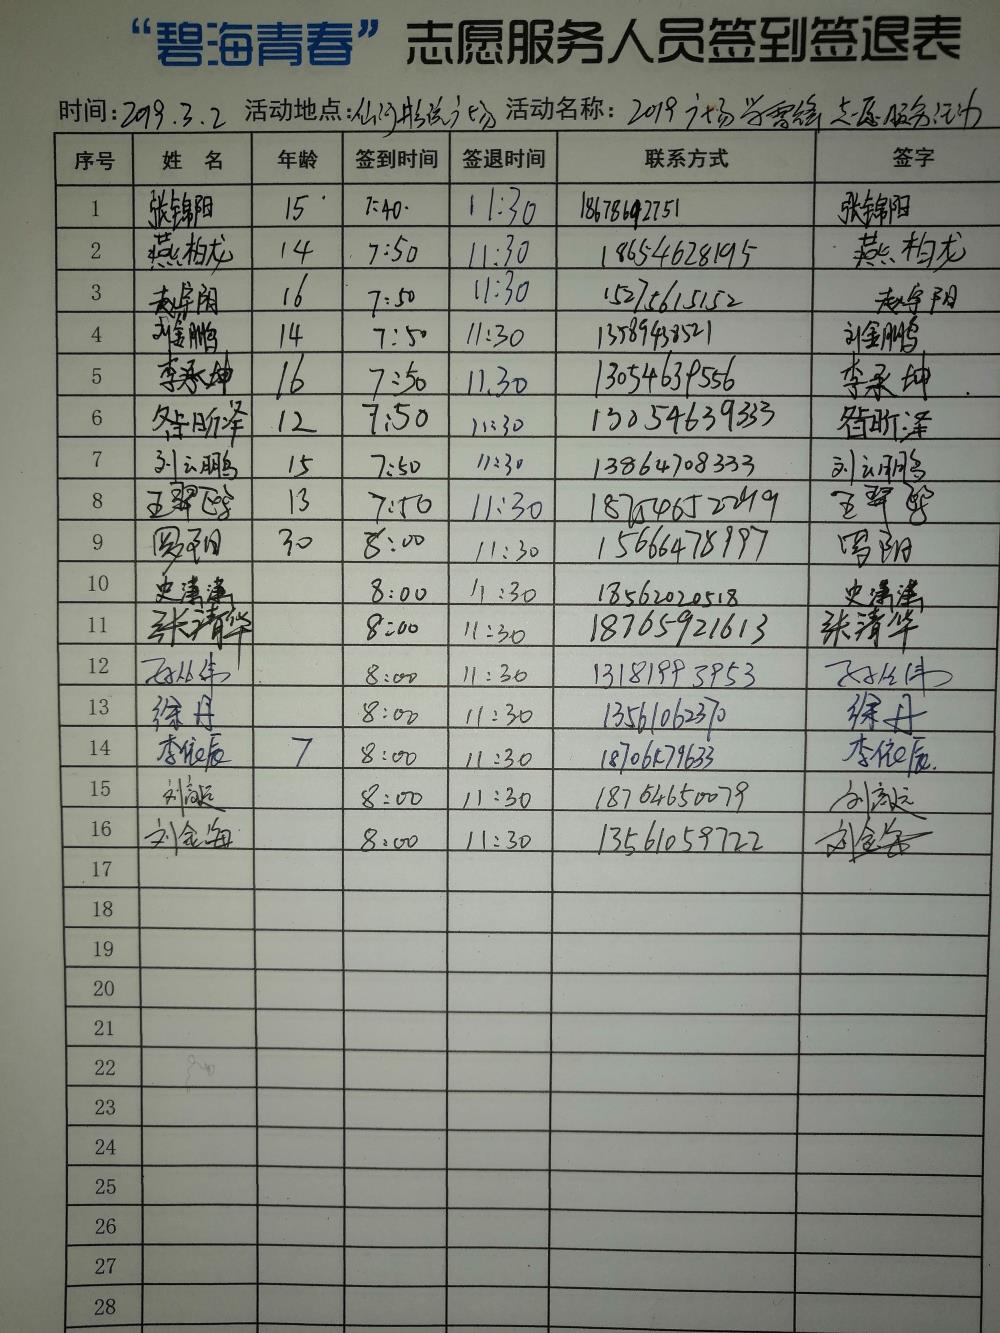 “碧海青春”志愿服务人员签到签退表
时间:2019.3.2 活动地点: 活动名称: 2019 广场学雷锋志愿服务活动
序号 姓 名 年龄 签到时间 签退时间 联系方式 签字
1 张锦阳 15 7:40 11:30 18678692751 张锦阳
2 燕柏龙 14 7:50 11:30 18654628195 燕柏龙
3 赵宇阳 16 7:50 11:30 15275615152 赵宇阳
4 刘金鹏 14 7:50 11:30 13589438521 刘金鹏
5 李承坤 16 7:50 11.30 13054639556 李承坤
6 昝昕泽 12 7:50 11:30 13054639333 昝昕泽
7 刘云鹏 15 7:50 11:30 13864708333 刘云鹏
8 王 13 7:50 11:30 王
9 30 8:00 11:30 15666478997
10 史潇潇 8:00 11:30 18562020518 史潇潇
11 张清华 8:00 11:30 18765921613 张清华
12 8:00 11:30 13181993953
13 徐丹 8:00 11:30 13561062370 徐丹
14 李依辰 7 8:00 11:30 18706679633 李依辰.
15 8:00 11:30 18704650079
16 刘金海 8:00 11:30 13561059722 刘金海
17
18
19
20
21
22
23
24
25
26
27
28